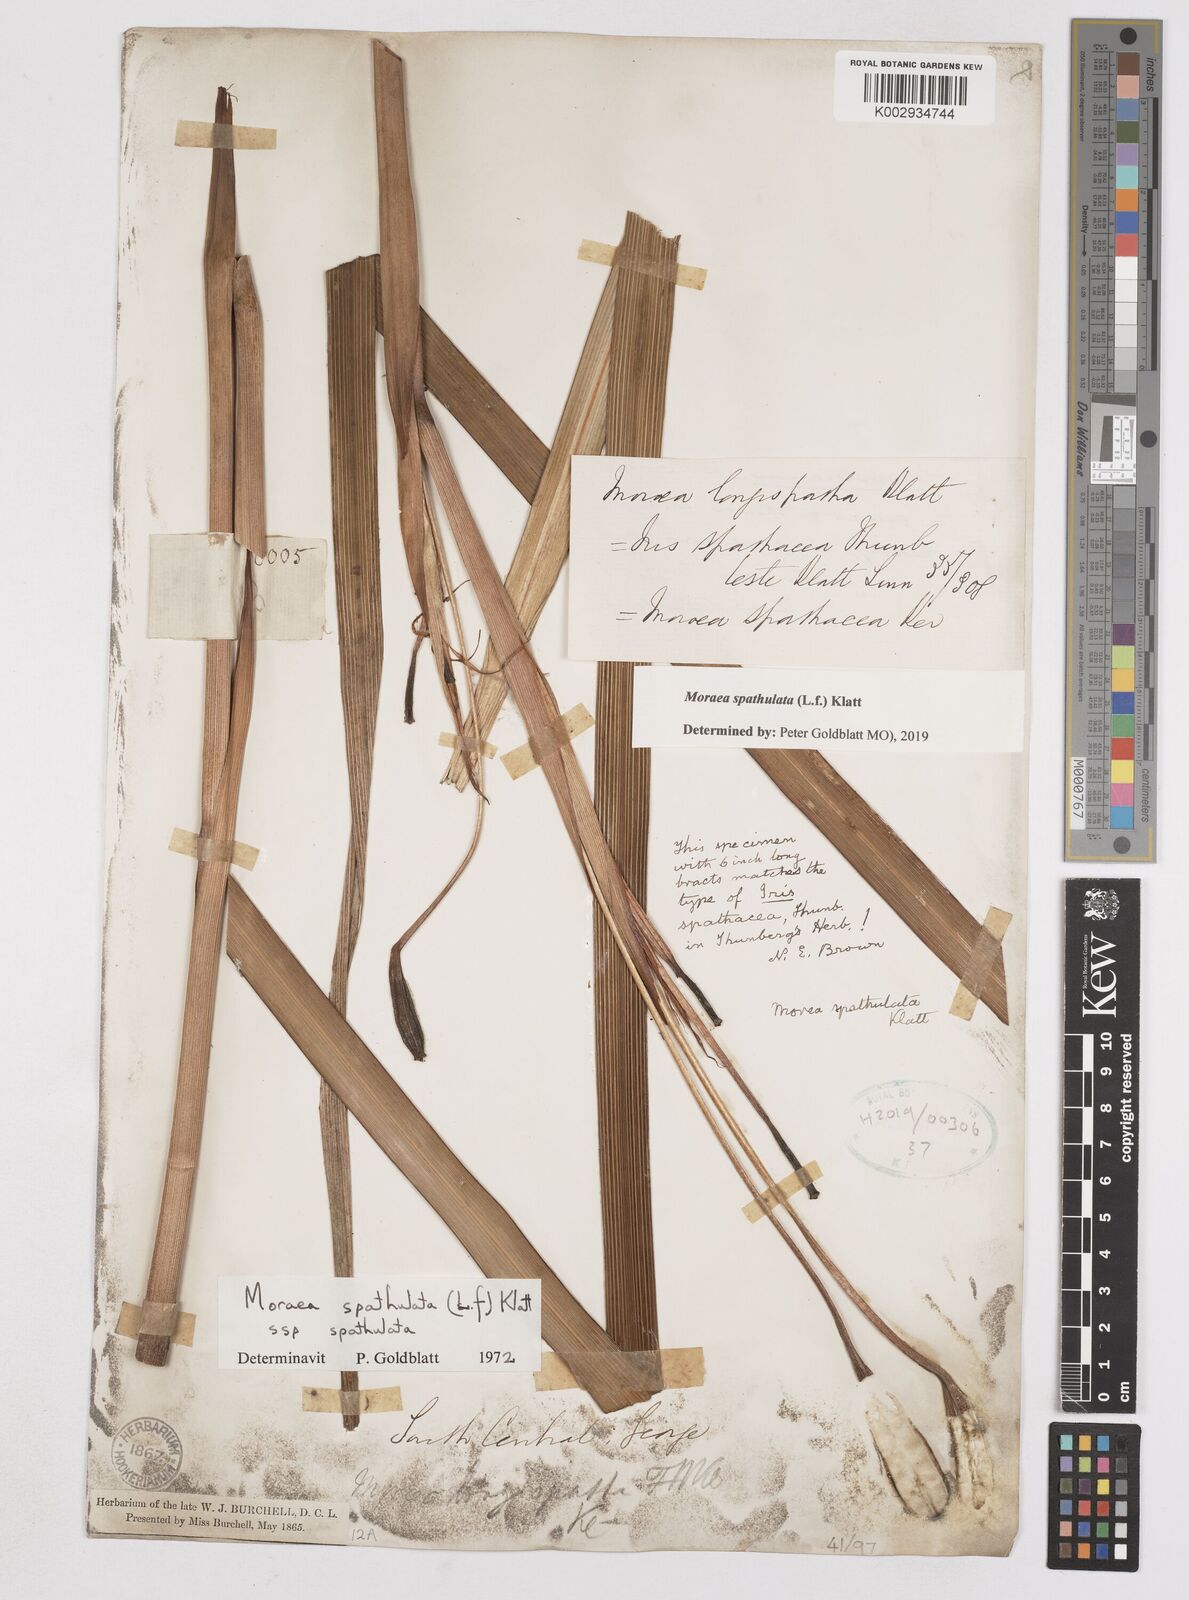 ROYAL BOTANIC GARDENS KEW
K002934744
005
Moraea longispatha Klatt
= Iris spathacea Thunb
teste Klatt Linn 35/308
= Moraea spathacea Ker
Moraea spathulata (L.f.) Klatt
Determined by: Peter Goldblatt MO), 2019
This specimen
with 6 inch long
bracts matches the
type of Iris
spathacea, Thunb.
in Thunberg's Herb.!
N. E. Brown
Morea spathulata
Klatt
H2019/00306
37
Moraea spathulata (L.f) Klatt
ssp spathulata
Determinavit P. Goldblatt 1972
South Central: George
HERBARIUM
1867
HOOKERIANUM
Herbarium of the late W. J. BURCHELL, D. C. L.
Presented by Miss Burchell, May 1865.
12A
41/97
inches
Density
Don Williams
M000767
centimeters
Royal Botanic Gardens
Kew
0 1 2 3 4 5 6 7 8 9 10
cm
copyright reserved